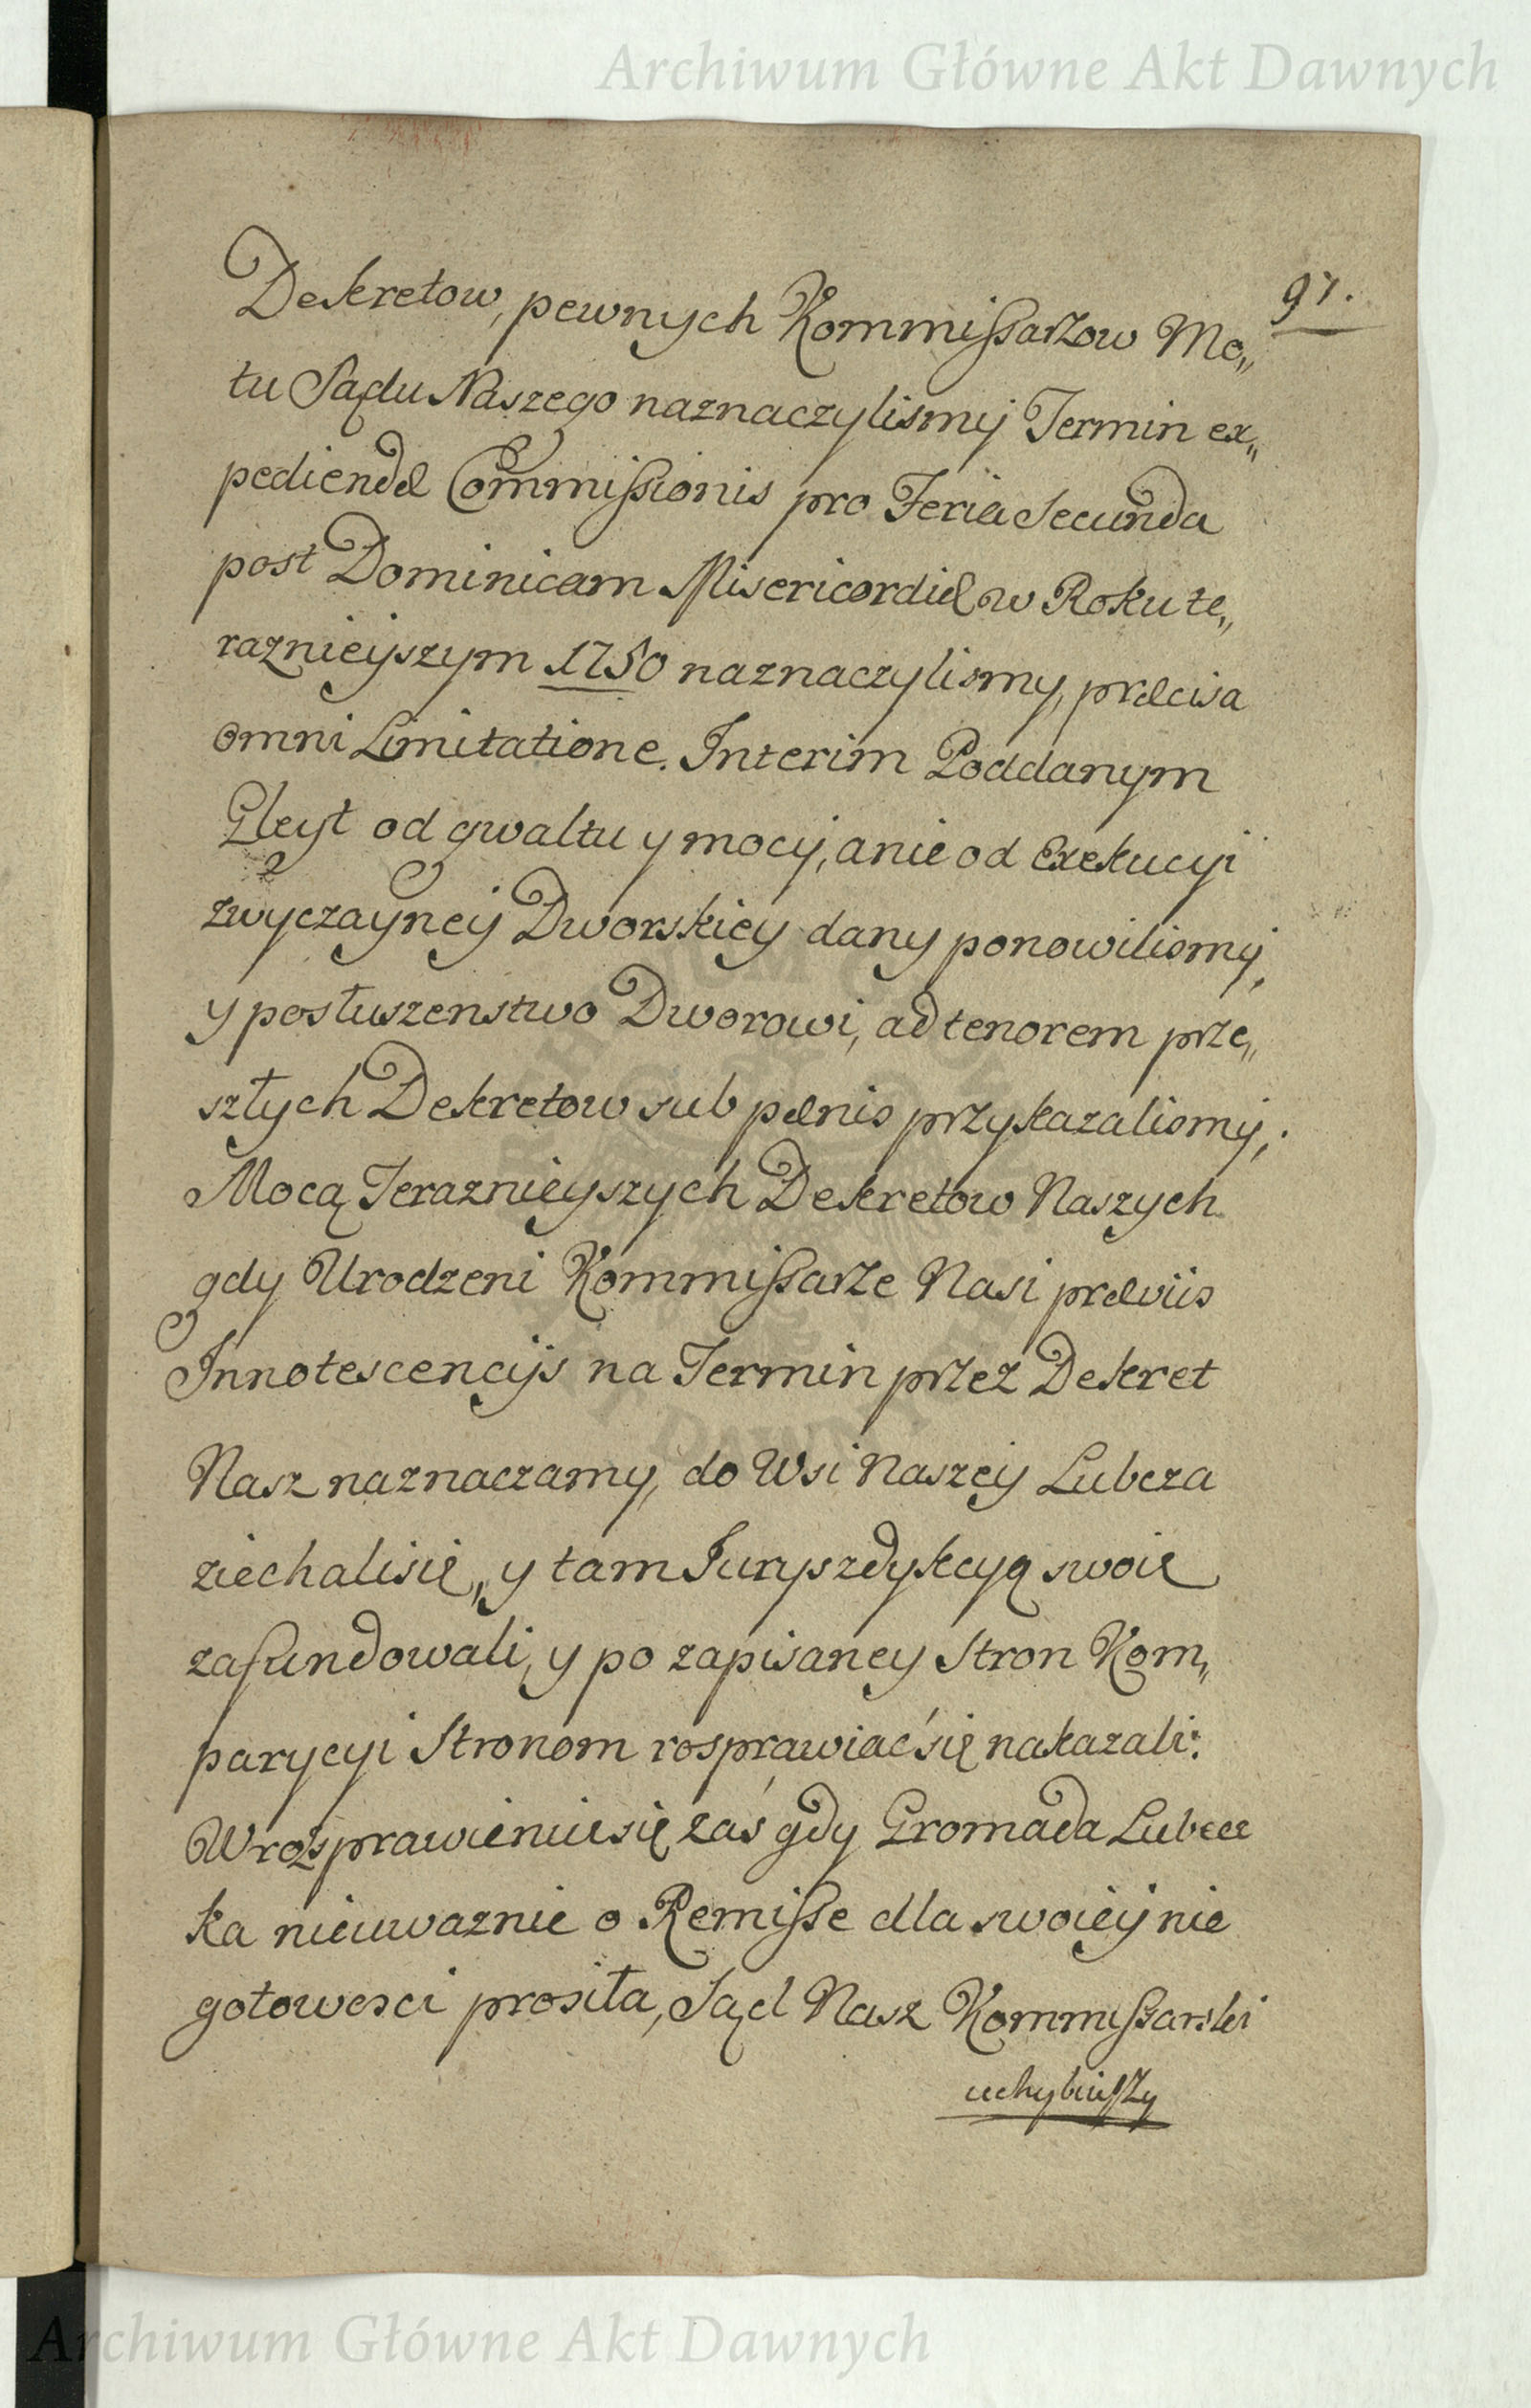 Archiwum Główne Akt Dawnych
97.
Dekretow, pewnych Kommißarzow Mo„
tu Sądu Naszego naznaczylismy Termin ex„
pediendæ Commißionis pro Feria Secunda
post Dominicam Misericordiæ w Roku te„
raznieyszym 1750 naznaczylismy, præcisa
omni Limitatione. Interim Poddanym
Gleyt od gwaltu y mocy, anie od Exekucyi
zwyczayney Dworskiey dany ponowilismy,
y posłuszenstwo Dworowi, ad tenorem prze„
szłych Dekretow sub pænis przykazalismy,.
Mocą Teraznieyszych Dekretow Naszych
gdy Urodzeni Kommißarze Nasi præviis
Innotescencijs na Termin przez Dekret
Nasz naznaczamy, do Wsi Naszey Lubcza
ziechalisię„ y tam Juryszdykcyą swoię
zafundowali, y po zapisaney Stron Kom„
parycyi Stronom rosprawiać się nakazali:
W rozsprawieniu się zaś gdy Gromada Lubecz
ka nieuwaznie o Remiße dla swoiey nie
gotowosci prosiła, Sąd Nasz Kommißarski
uchybiwszy
Archiwum Główne Akt Dawnych